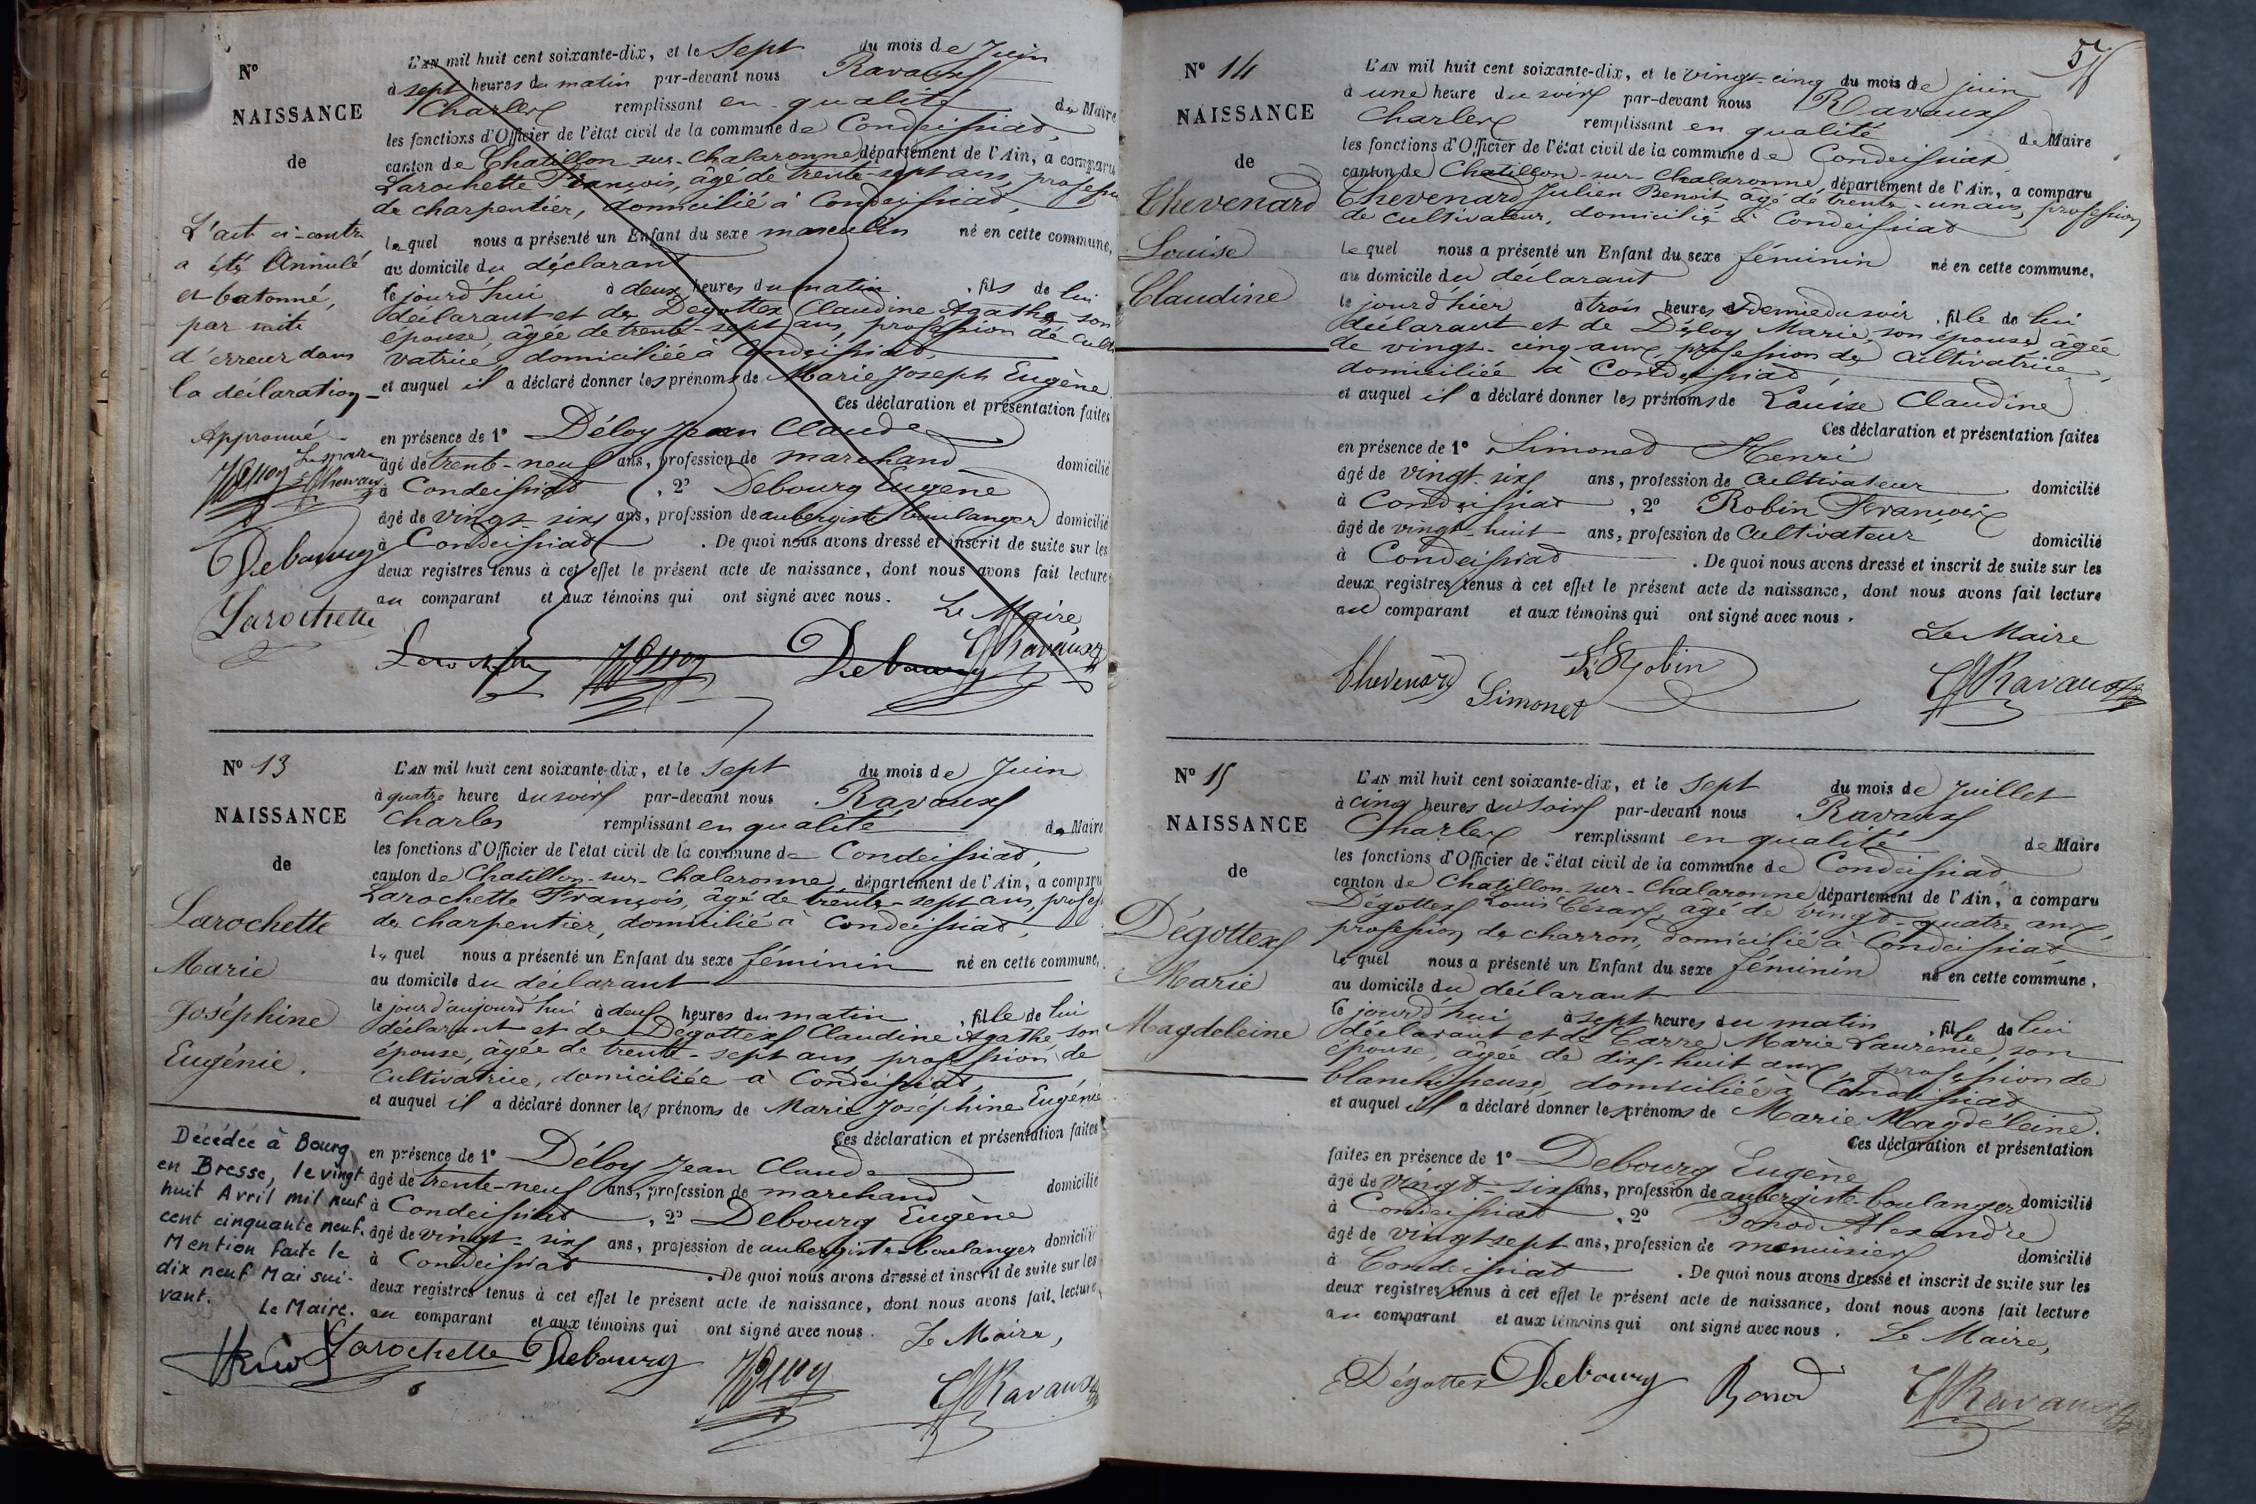 N°
NAISSANCE
de
L'act ci-contre
a été Annulé
et batonné,
par suite
d'erreur dans
la déclaration
Approuvé
Le maire
Debourg
Larochette
L'AN mil huit cent soixante-dix, et le sept du mois de Juin
à sept heures du matin par-devant nous Ravaux
Charles remplissant en qualité de Maire
les fonctions d'Officier de l'état civil de la commune de Condeissiat,
canton de Chatillon-sur-Chalaronne département de l'Ain, a comparu
Larochette François, âgé de trente-sept ans, profession
de charpentier, domicilié à Condeissiat,
lequel nous a présenté un Enfant du sexe masculin né en cette commune,
au domicile du déclarant
le jourd'hui à deux heures du matin, fils de lui
déclarant et de Degottex Claudine Agathe son
épouse, âgée de trente-sept ans, profession de culti
vatrice domiciliée à Condeissiat
et auquel il a déclaré donner les prénoms de Marie Joseph Eugène
Ces déclaration et présentation faites
en présence de 1° Déloy Jean Claude
âgé de trente-neuf ans, profession de marchand domicilié
à Condeissiat, 2° Debourg Eugène
âgé de vingt-six ans, profession de aubergiste boulanger domicilié
à Condeissiat. De quoi nous avons dressé et inscrit de suite sur les
deux registres tenus à cet effet le présent acte de naissance, dont nous avons fait lecture
au comparant et aux témoins qui ont signé avec nous.
Le Maire
Larochette Debourg Ravaux
N° 13
NAISSANCE
de
Larochette
Marie
Joséphine
Eugénie.
Décédée à Bourg
en Bresse, le vingt
huit Avril mil neuf
cent cinquante neuf.
Mention faite le
dix neuf Mai sui-
vant. Le Maire.
L'AN mil huit cent soixante-dix, et le sept du mois de Juin
à quatre heure du soir par-devant nous Ravaux
Charles remplissant en qualité de Maire
les fonctions d'Officier de l'état civil de la commune de Condeissiat,
canton de Chatillon-sur-Chalaronne, département de l'Ain, a comparu
Larochette François, âgé de trente-sept ans, profes
de charpentier, domicilié à Condeissiat,
lequel nous a présenté un Enfant du sexe féminin né en cette commune,
au domicile du déclarant
le jour d'aujourd'hui à deux heures du matin, fille de lui
déclarant et de Dégottex Claudine Agathe, son
épouse, âgée de trente-sept ans, profession de
Cultivatrice, domiciliée à Condeissiat,
et auquel il a déclaré donner les prénoms de Marie Joséphine Eugénie
Ces déclaration et présentation faites
en présence de 1° Déloy Jean Claude
âgé de trente-neuf ans, profession de marchand domicilié
à Condeissiat, 2° Debourg Eugène
âgé de vingt-six ans, profession de aubergiste boulanger domicilié
à Condeissiat. De quoi nous avons dressé et inscrit de suite sur les
deux registres tenus à cet effet le présent acte de naissance, dont nous avons fait lecture
au comparant et aux témoins qui ont signé avec nous. Le Maire,
Larochette Debourg Ravaux
57
N° 14
NAISSANCE
de
Chevenard
Louise
Claudine
L'AN mil huit cent soixante-dix, et le vingt-cinq du mois de juin
à une heure du soir par-devant nous Ravaux
Charles remplissant en qualité de Maire
les fonctions d'Officier de l'état civil de la commune de Condeissiat
canton de Chatillon-sur-Chalaronne, département de l'Ain, a comparu
Chevenard Julien Benoit, âgé de trente-un ans, profession
de cultivateur, domicilié à Condeissiat
lequel nous a présenté un Enfant du sexe féminin né en cette commune,
au domicile du déclarant
le jourd'hier à trois heures et demie du soir, fille de lui
déclarant et de Déloy Marie, son épouse, âgée
de vingt-cinq ans, profession de Cultivatrice,
domiciliée à Condeissiat,
et auquel il a déclaré donner les prénoms de Louise Claudine
Ces déclaration et présentation faites
en présence de 1° Simonet Henri
âgé de vingt-six ans, profession de Cultivateur domicilié
à Condeissiat, 2° Robin François
âgé de vingt-huit ans, profession de Cultivateur domicilié
à Condeissiat. De quoi nous avons dressé et inscrit de suite sur les
deux registres tenus à cet effet le présent acte de naissance, dont nous avons fait lecture
au comparant et aux témoins qui ont signé avec nous.
Le Maire
Chevenard Simonet Robin Ravaux
N° 15
NAISSANCE
de
Dégottex
Marie
Magdeleine
L'AN mil huit cent soixante-dix, et le sept du mois de Juillet
à cinq heures du Soir par-devant nous Ravaux
Charles remplissant en qualité de Maire
les fonctions d'Officier de l'état civil de la commune de Condeissiat
canton de Chatillon-sur-Chalaronne département de l'Ain, a comparu
Dégottex Louis César, âgé de vingt-quatre ans,
profession de charron, domicilié à Condeissiat
lequel nous a présenté un Enfant du sexe féminin né en cette commune,
au domicile du déclarant
le jourd'hui à sept heures du matin, fille de lui
déclarant et de Carre Marie Laurence, son
épouse, âgée de dix-huit ans, profession de
blanchisseuse, domiciliée à Condeissiat
et auquel il a déclaré donner les prénoms de Marie Magdéleine.
Ces déclaration et présentation
faites en présence de 1° Debourg Eugène
âgé de vingt-six ans, profession de aubergiste-boulanger domicilié
à Condeissiat, 2° Bonod Alexandre
âgé de vingt-sept ans, profession de menuisier domicilié
à Condeissiat. De quoi nous avons dressé et inscrit de suite sur les
deux registres tenus à cet effet le présent acte de naissance, dont nous avons fait lecture
au comparant et aux témoins qui ont signé avec nous. Le Maire,
Dégottex Debourg Bonod Ravaux